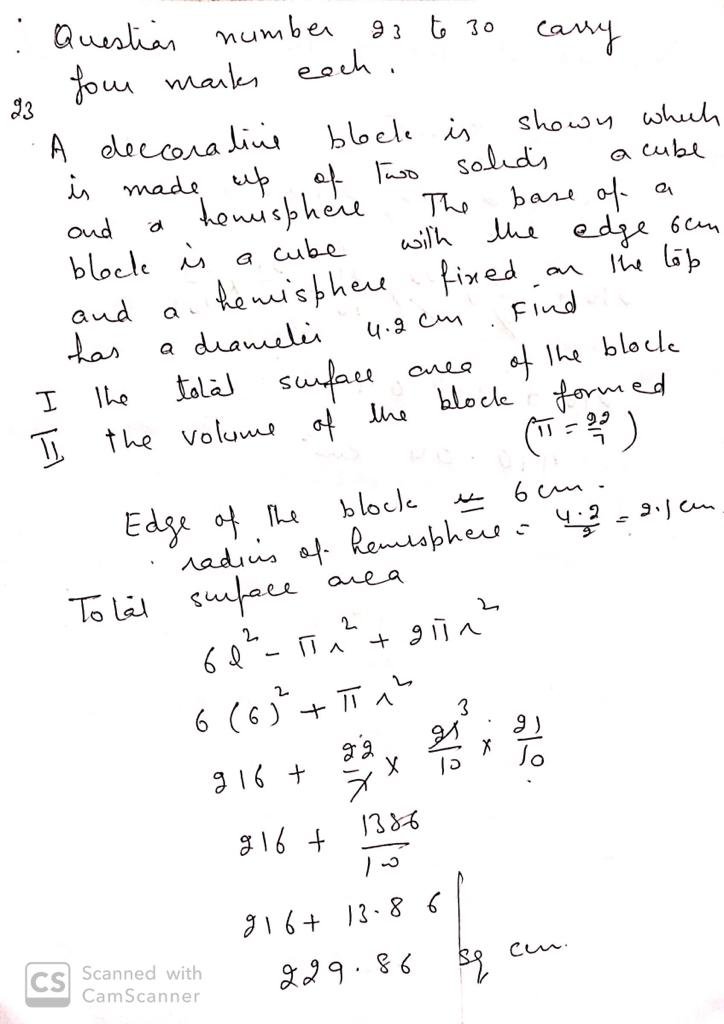 : Question number 23 to 30 carry
four marks each.
23
A deccorative block is shown which
is made up of two solids a cube
and a hemisphere The base of a
block is a cube with the edge 6cm
and a hemisphere fixed on the top
has a diameter 4.2 cm. Find
I the total surface area of the block
II the volume of the block formed
(π = 22/7)
Edge of the block = 6 cm.
radius of hemisphere = 4.2/2 = 2.1 cm
Total surface area
6l² - πr² + 2πr²
6(6)² + πr²
216 + 22/7 × 21/10 × 21/10
3
216 + 1386/10
216 + 13.86
229.86 sq cm.
CS Scanned with
CamScanner